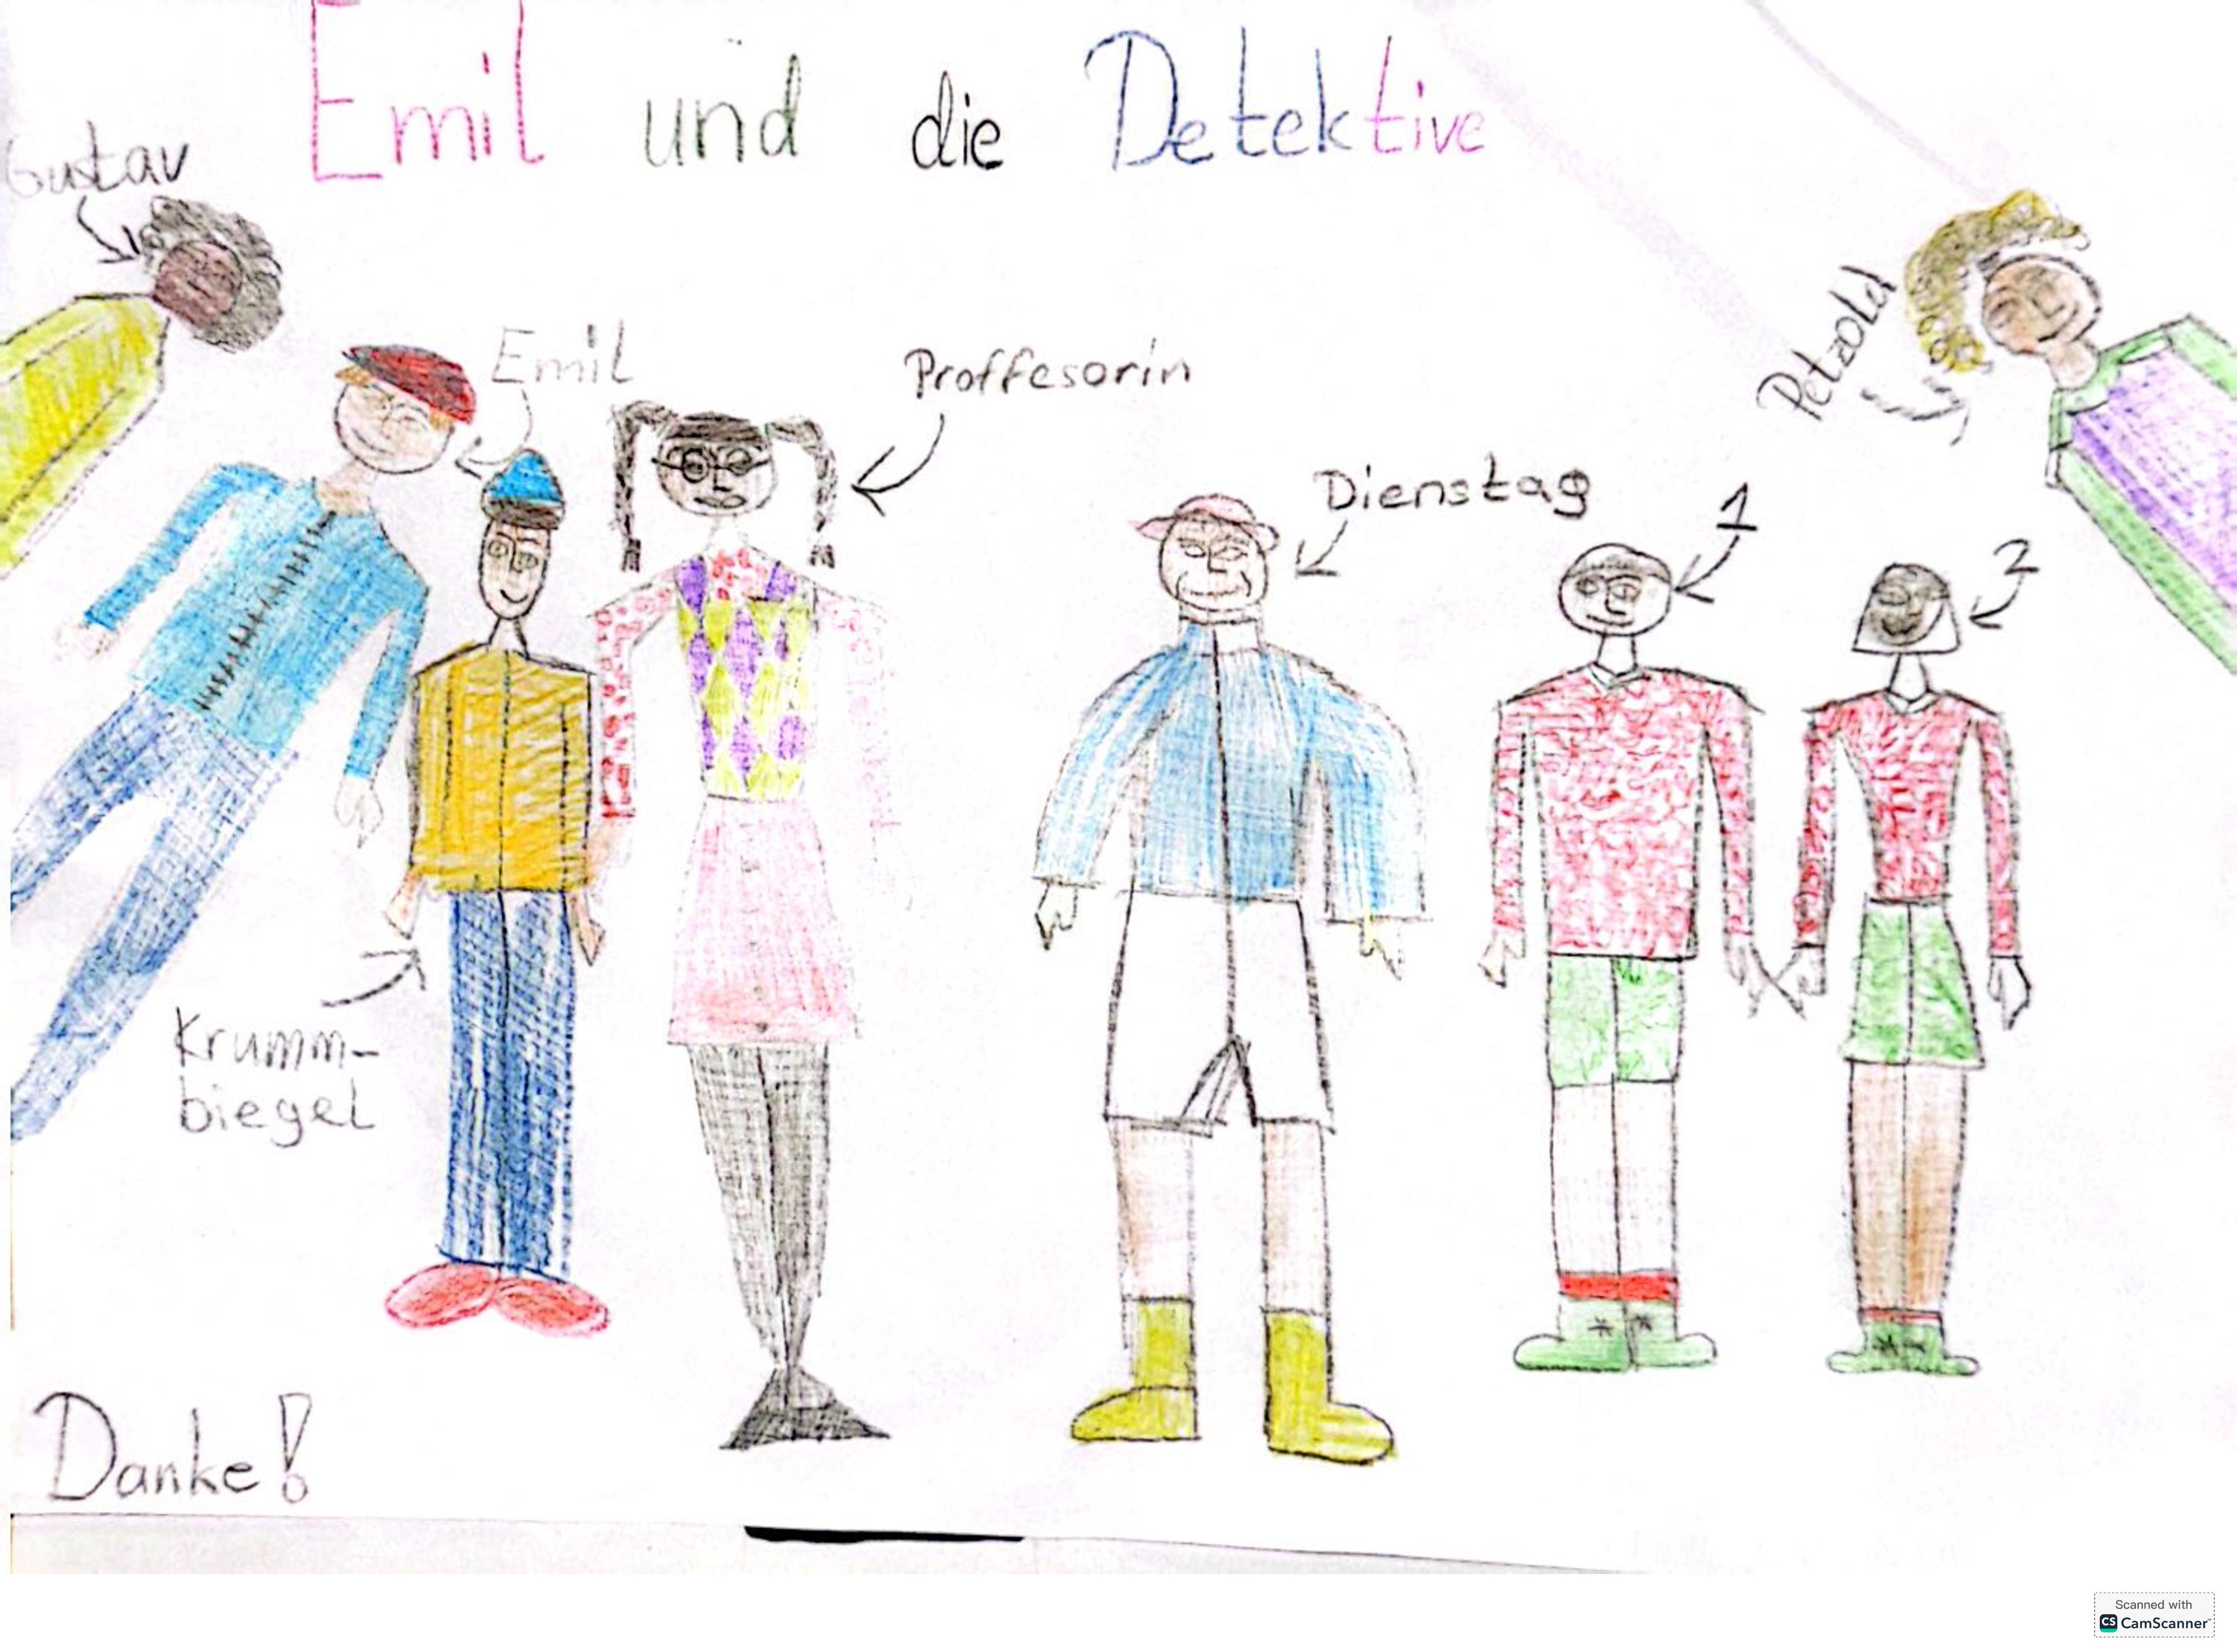 Emil und die Detektive
Gustav
Emil
Proffesorin
Petzold
Dienstag
1
2
Krumm-
biegel
Danke!
Scanned with
CS CamScanner